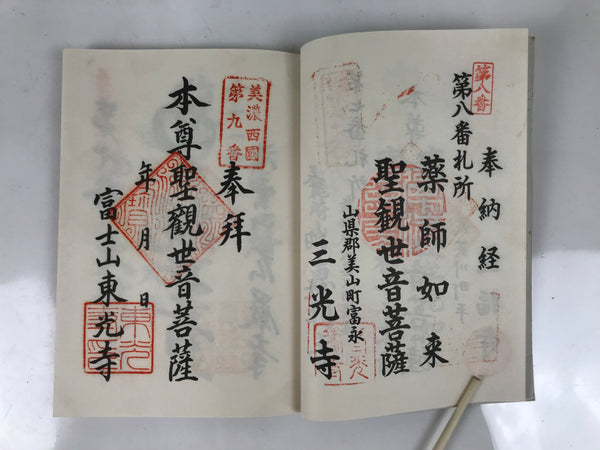 第八番
奉納経
第八番札所
薬師如来
聖観世音菩薩
山県郡美山町富永
三光寺
美濃西國
第九番
奉拝
本尊聖観世音菩薩
年月日
富士山東光寺
東光